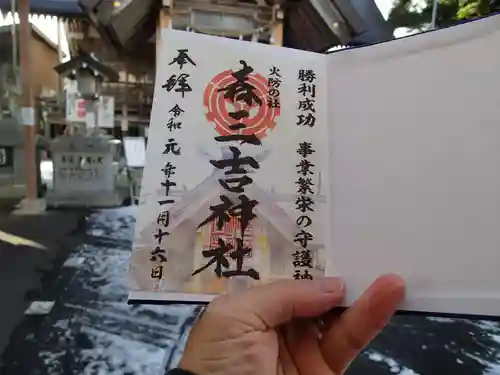 勝利成功 事業繁栄の守護神
火防の社
森三吉神社
奉拝 令和元年十一月十六日